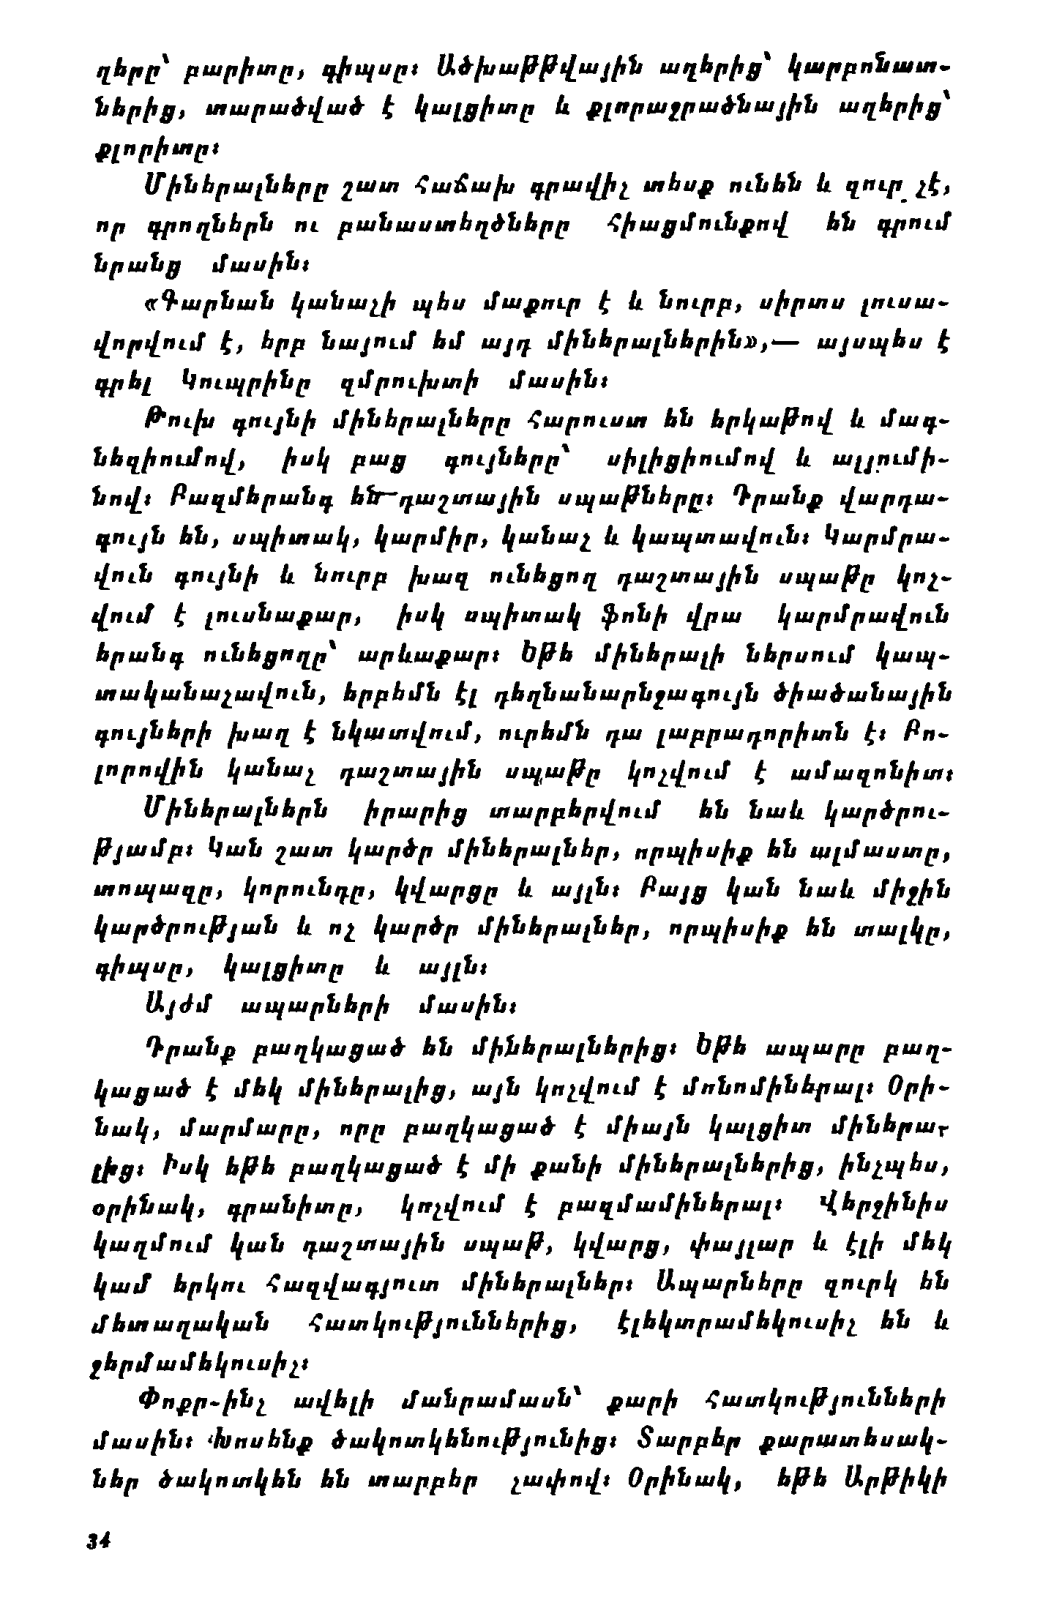 ղերը՝ բարիտը, գիպսը։ Ածխաթթվային աղերից՝ կարբոնատ-
ներից, տարածված է կալցիտը և քլորաջրածնային աղերից՝
քլորիտը։
Միներալները շատ հաճախ գրավիչ տեսք ունեն և զուր չէ,
որ գրողներն ու բանաստեղծները հիացմունքով են գրում
նրանց մասին։
«Գարնան կանաչի պես մաքուր է և նուրբ, սիրտս լուսա-
վորվում է, երբ նայում եմ այդ միներալներին»,— այսպես է
գրել Կուպրինը զմրուխտի մասին։
Թուխ գույնի միներալները հարուստ են երկաթով և մագ-
նեզիումով, իսկ բաց գույները՝ սիլիցիումով և ալյումի-
նով։ Բազմերանգ են դաշտային սպաթները։ Դրանք վարդա-
գույն են, սպիտակ, կարմիր, կանաչ և կապտավուն։ Կարմրա-
վուն գույնի և նուրբ խազ ունեցող դաշտային սպաթը կոչ-
վում է լուսնաքար, իսկ սպիտակ ֆոնի վրա կարմրավուն
երանգ ունեցողը՝ արևաքար։ Եթե միներալի ներսում կապ-
տականաչավուն, երբեմն էլ դեղնանարնջագույն ծիածանային
գույների խաղ է նկատվում, ուրեմն դա լաբրադորիտն է։ Բո-
լորովին կանաչ դաշտային սպաթը կոչվում է ամազոնիտ։
Միներալներն իրարից տարբերվում են նաև կարծրու-
թյամբ։ Կան շատ կարծր միներալներ, որպիսիք են ալմաստը,
տոպազը, կորունդը, կվարցը և այլն։ Բայց կան նաև միջին
կարծրության և ոչ կարծր միներալներ, որպիսիք են տալկը,
գիպսը, կալցիտը և այլն։
Այժմ ապարների մասին։
Դրանք բաղկացած են միներալներից։ Եթե ապարը բաղ-
կացած է մեկ միներալից, այն կոչվում է մոնոմիներալ։ Օրի-
նակ, մարմարը, որը բաղկացած է միայն կալցիտ միներա-
լից։ Իսկ եթե բաղկացած է մի քանի միներալներից, ինչպես,
օրինակ, գրանիտը, կոչվում է բազմամիներալ։ Վերջինիս
կազմում կան դաշտային սպաթ, կվարց, փայլար և էլի մեկ
կամ երկու հազվագյուտ միներալներ։ Ապարները զուրկ են
մետաղական հատկություններից, էլեկտրամեկուսիչ են և
ջերմամեկուսիչ։
Փոքր-ինչ ավելի մանրամասն՝ քարի հատկությունների
մասին։ Խոսենք ծակոտկենությունից։ Տարբեր քարատեսակ-
ներ ծակոտկեն են տարբեր չափով։ Օրինակ, եթե Արթիկի
34